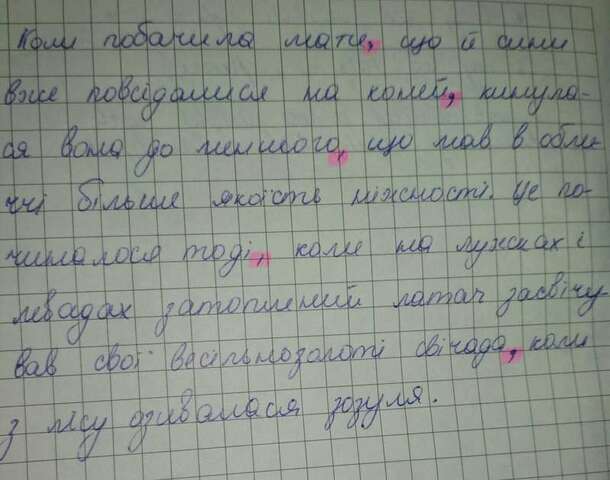 Коли побачила мати, що й сини
вже повсідалися на коней, кинула-
ся вона до меншого, що мав в обли-
ччі більше якоїсь ніжності. Це по-
чиналося тоді, коли на лужках і
левадах затоплений латач засвічу
вав свої весільнозолоті свічада, коли
з лісу озивалася зозуля.